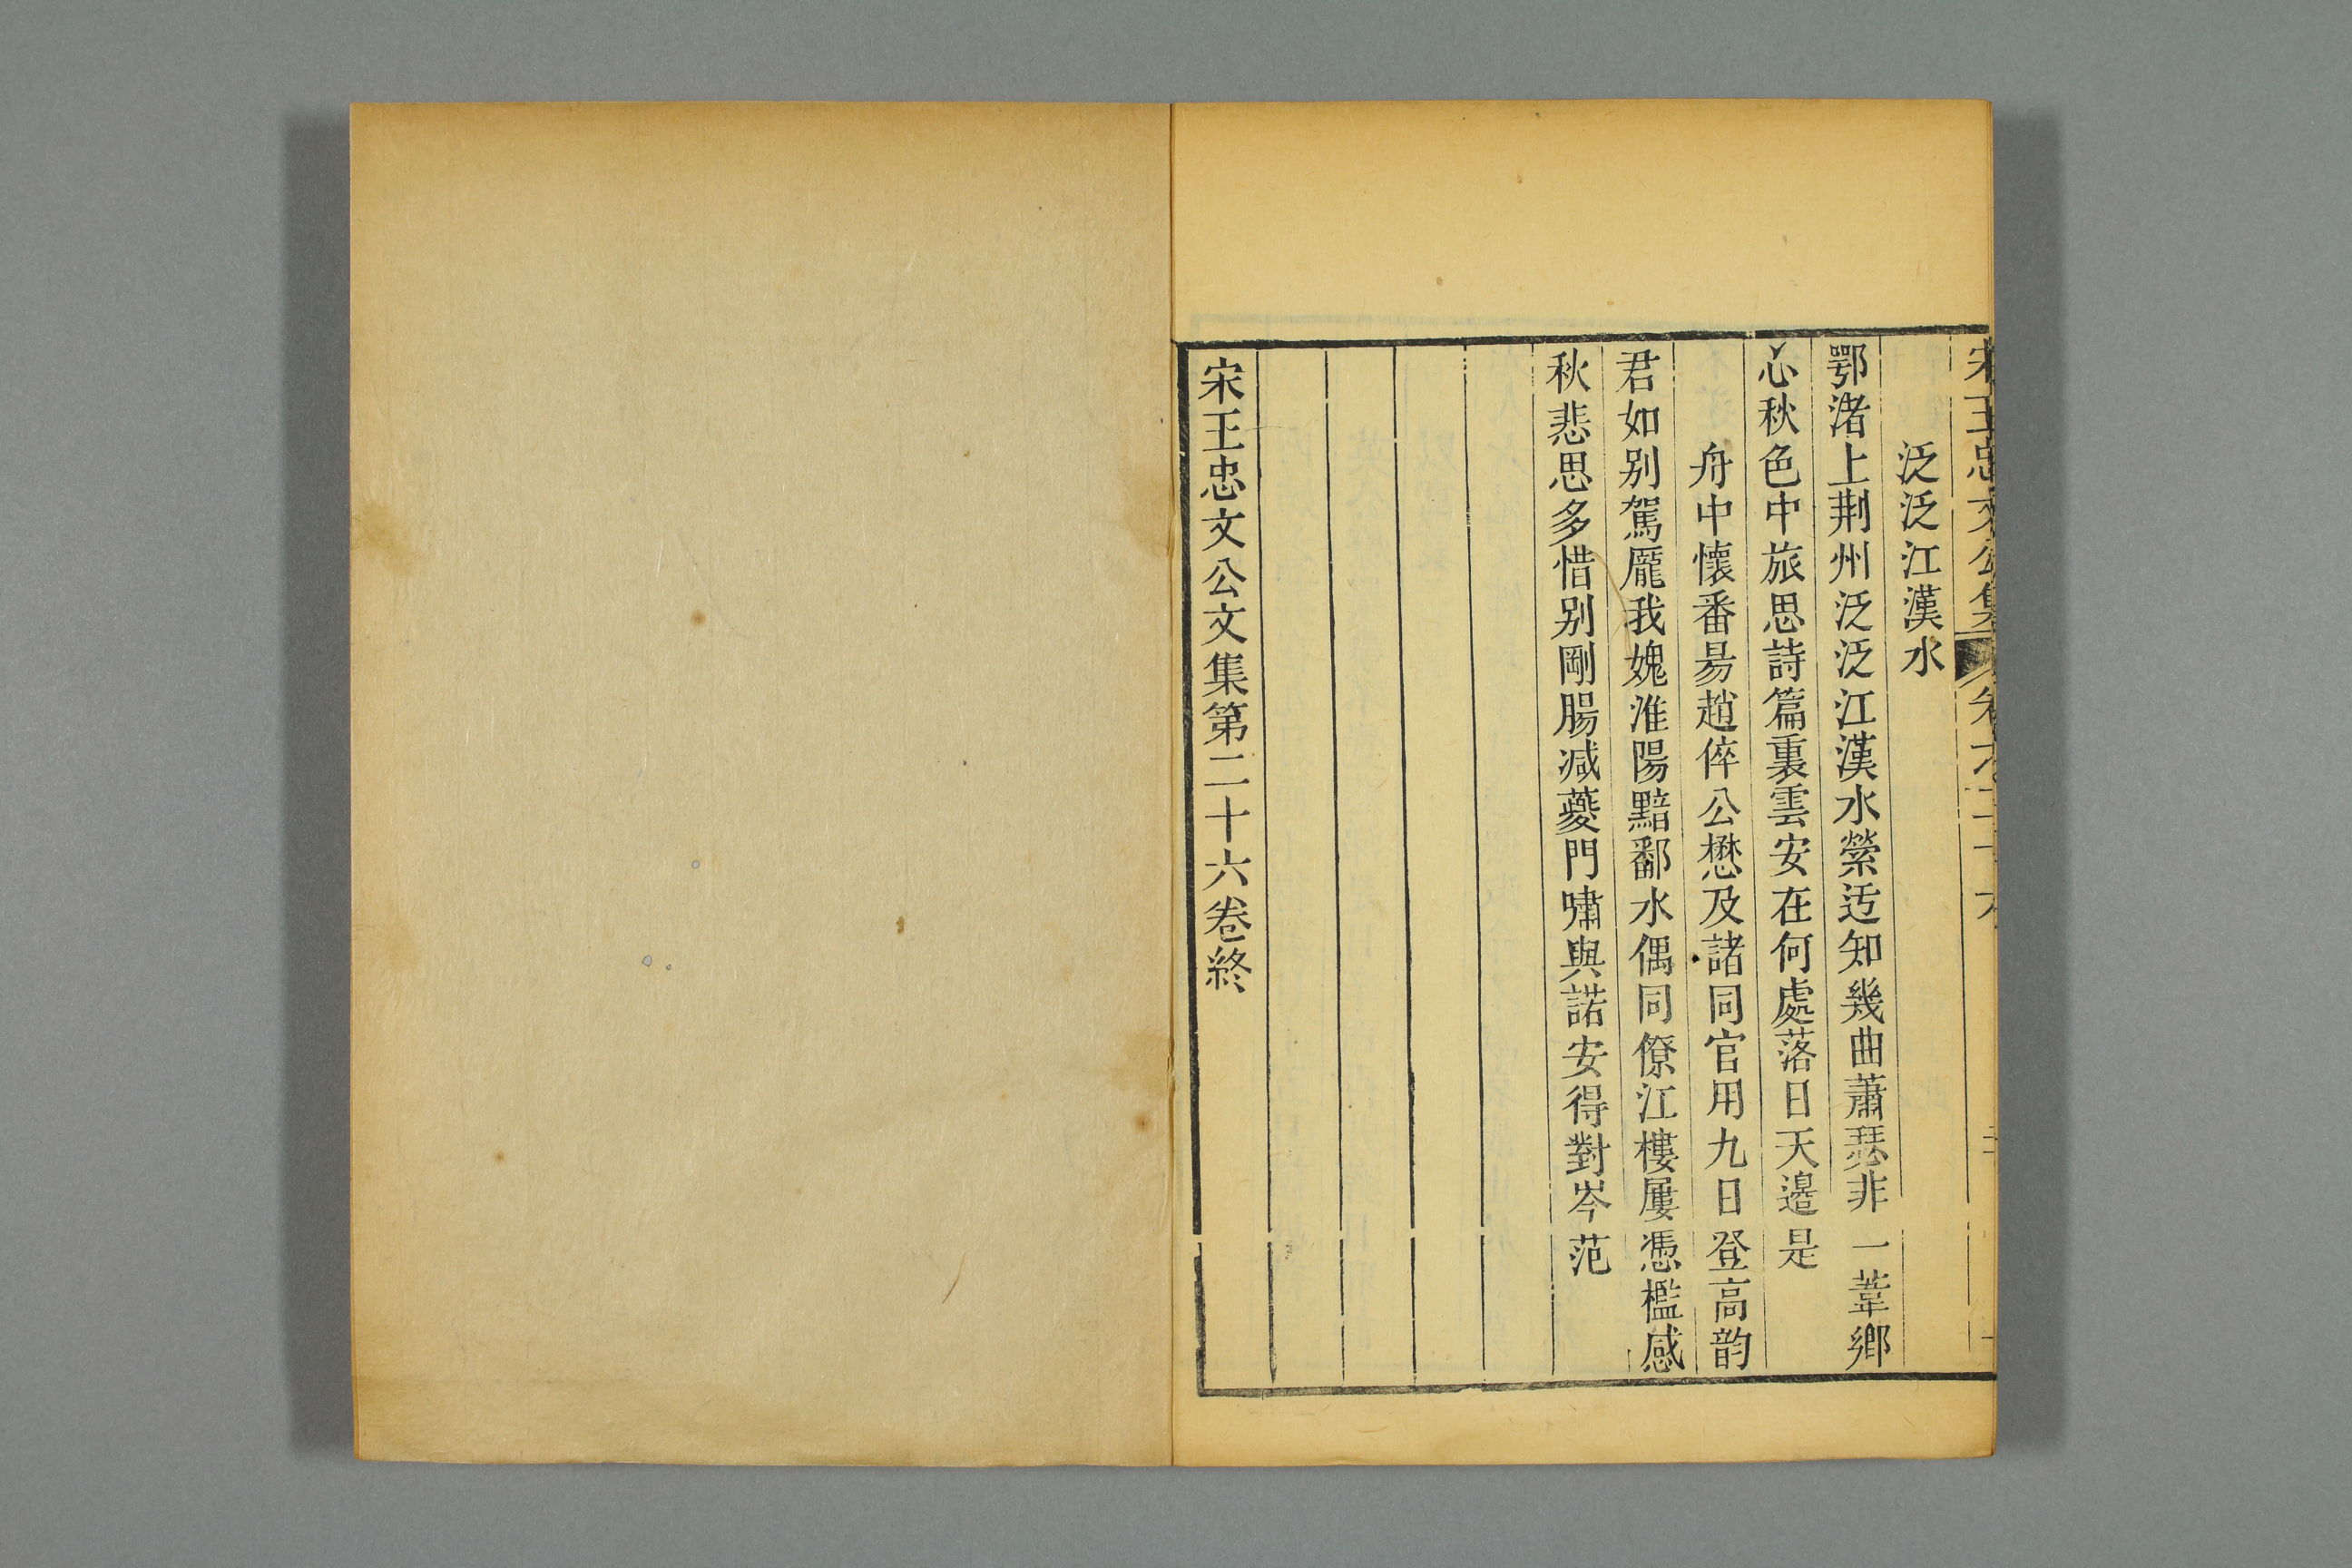 宋王忠文公集 卷之二十六
泛泛江漢水
鄂渚上荆州泛泛江漢水縈迃知幾曲蕭瑟非一葦鄉
心秋色中旅思詩篇裏雲安在何處落日天邉是
舟中懷番昜趙倅公懋及諸同官用九日登高韵
君如别駕龎我媿淮陽黯鄱水偶同僚江樓屢憑檻感
秋悲思多惜别剛腸减夔門嘯與諾安得對岑范
宋王忠文公文集第二十六卷終